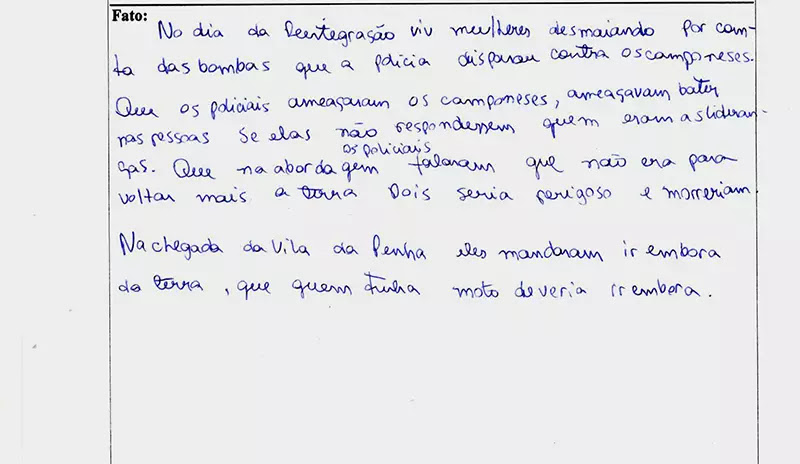 Fato:
No dia da Reentegração viv meulheres desmaiando por con-
ta das bombas que a policia disparou contra os camponeses.
Que os policiais ameaçaram os camponeses, ameaçavam bater
nas pessoas se elas não respondessem quem eram as lideran-
ças. Que na abordagem os policiais falaram que não era para
voltar mais a terra Pois seria perigoso e morreriam.
Na chegada da Vila da Penha eles mandaram ir embora
da terra, que quem tinha moto deveria ir embora.